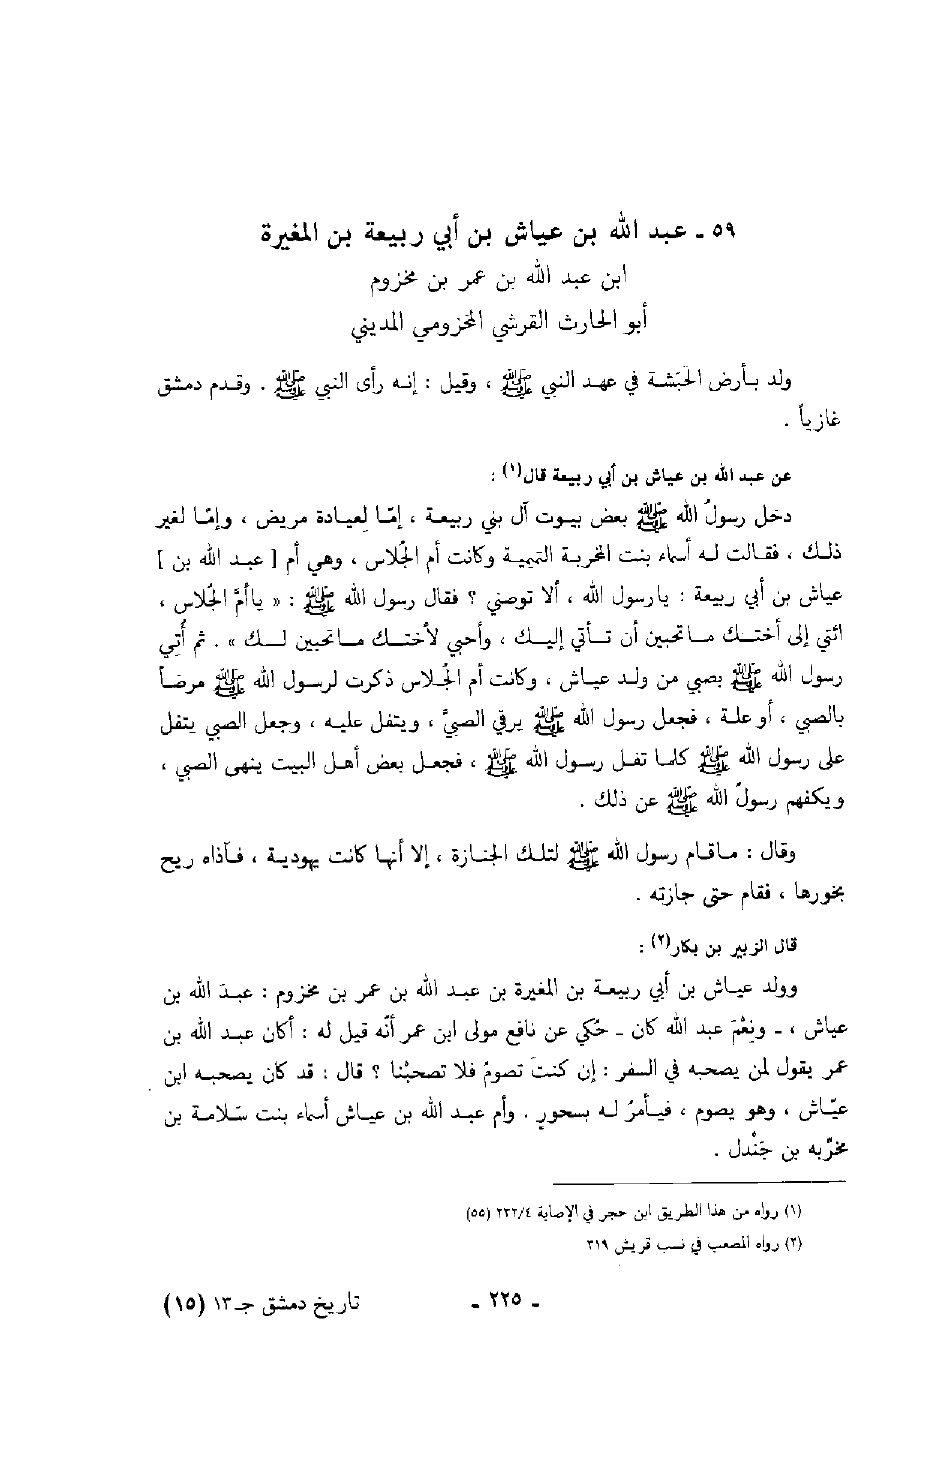 ٥٩ ـ عبد الله بن عياش بن أبي ربيعة بن المغيرة
ابن عبد الله بن عمر بن مخزوم
أبو الحارث القرشي المخزومي المديني
ولد بأرض الحَبَشة في عهد النبي ﷺ ، وقيل : إنه رأى النبي ﷺ . وقدم دمشق
غازياً .
عن عبد الله بن عياش بن أبي ربيعة قال(١) :
دخل رسولُ الله ﷺ بعض بيوت آل بني ربيعة ، إمّا لعيادة مريض ، وإمّا لغير
ذلك ، فقالت له أسماء بنت المخربة التميمية وكانت أم الجُلاس ، وهي أم [ عبد الله بن ]
عياش بن أبي ربيعة : يارسول الله ، ألا توصني ؟ فقال رسول الله ﷺ : « ياأمَّ الجُلاس ،
ائتي إلى أختك ماتحبين أن تأتي إليك ، وأحبي لأختك ماتحبين لك » . ثم أُتي
رسول الله ﷺ بصبي من ولد عياش ، وكانت أم الجُلاس ذكرت لرسول الله ﷺ مرضاً
بالصبي ، أو علة ، فجعل رسول الله ﷺ يرقي الصبيَّ ، ويتفل عليه ، وجعل الصبي يتفل
على رسول الله ﷺ كلما تفل رسول الله ﷺ ، فجعل بعض أهل البيت ينهى الصبي ،
ويكفهم رسولُ الله ﷺ عن ذلك .
وقال : ماقام رسول الله ﷺ لتلك الجنازة ، إلا أنها كانت يهودية ، فآذاه ريح
بخورها ، فقام حتى جازته .
قال الزبير بن بكار(٢) :
وولد عياش بن أبي ربيعة بن المغيرة بن عبد الله بن عمر بن مخزوم : عبدَ الله بن
عياش ، ـ ونِعْمَ عبد الله كان ـ حُكي عن نافع مولى ابن عمر أنّه قيل له : أكان عبد الله بن
عمر يقول لمن يصحبه في السفر : إن كنتَ تصومُ فلا تصحبْنا ؟ قال : قد كان يصحبه ابن
عيّاش ، وهو يصوم ، فيأمرُ له بسحورٍ . وأم عبد الله بن عياش أسماء بنت سَلامة بن
مخرِّبه بن جَنْدل .
(١) رواه من هذا الطريق ابن حجر في الإصابة ٢٣٢/٤ (٥٥)
(٢) رواه المصعب في نسب قريش ٣١٩
ـ ٢٢٥ ـ
تاريخ دمشق جـ١٣ (١٥)